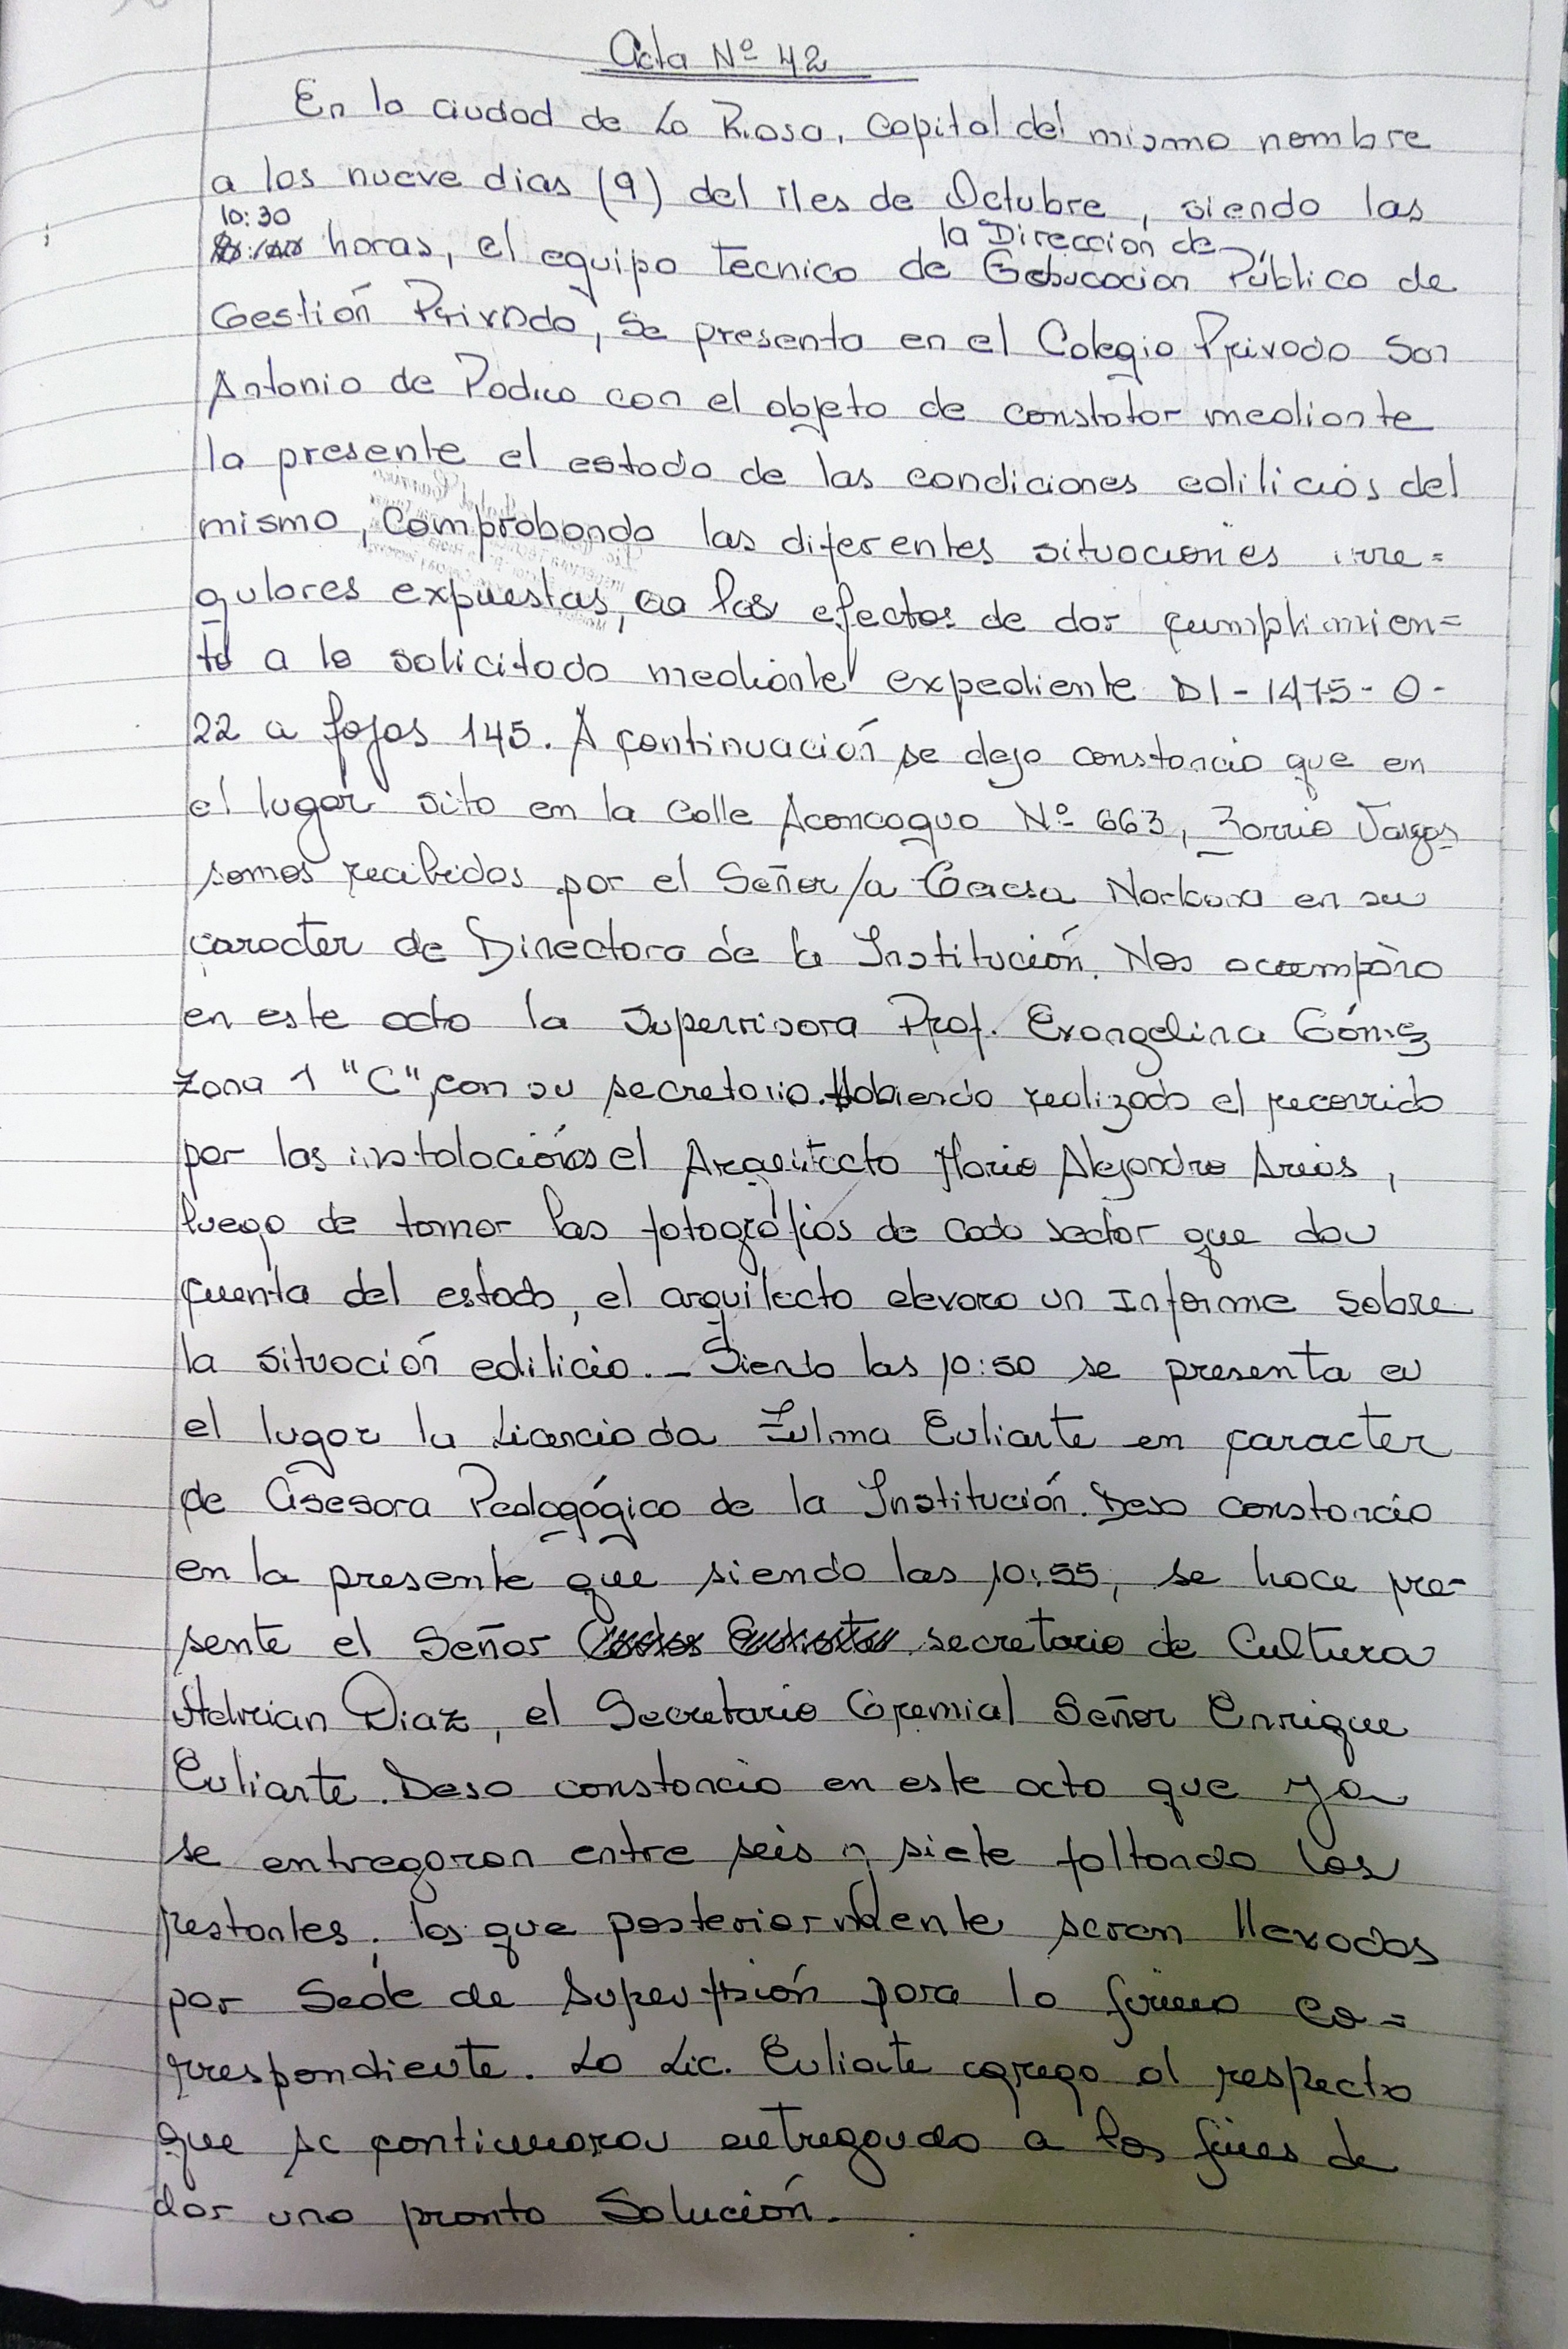 Acta Nº 42
En la ciudad de La Rioja, capital del mismo nombre
a los nueve dias (9) del Mes de Octubre, siendo las
10:30
horas, el equipo tecnico de la Dirección de Educación Pública de
Gestión Privada, se presenta en el Colegio Privado San
Antonio de Padua con el objeto de constatar mediante
la presente el estado de las condiciones edilicias del
mismo, comprobando las diferentes situaciones irre=
gulares expuestas, a los efectos de dar cumplimien=
to a lo solicitado mediante expediente D1-1475-0-
22 a fojas 145. A continuación se deja constancia que en
el lugar sito en la Calle Aconcagua Nº 663, Barrio Vargas
somos recibidos por el Señor/a en su
caracter de Directora de la Institución. Nos acompaña
en este acto la Supervisora Prof. Evangelina Gómez
Zona 1 "C", con su secretaria. Habiendo realizado el recorrido
por las instalaciónes el Arquitecto Mario Alejandro Arias,
luego de tomar las fotografías de cada sector que dan
cuenta del estado, el arquitecto elevara un Informe sobre
la situación edilicia. - Siendo las 10:50 se presenta en
el lugar la Licenciada Zulma Euliarte en caracter
de Asesora Pedagógica de la Institución. Dejo constancia
en la presente que siendo las 10:55, se hace pre-
sente el Señor secretario de Cultura
Adrian Diaz, el Secretario Gremial Señor Enrique
Euliarte. Dejo constancia en este acto que ya
se entregaron entre seis y siete faltando las
restantes, los que posteriormente seran llevados
por Sede de Supervisión para la firma co=
rrespondiente. La Lic. Euliarte agrega al respecto
que se continuaran entregando a los fines de
dar una pronta Solución.